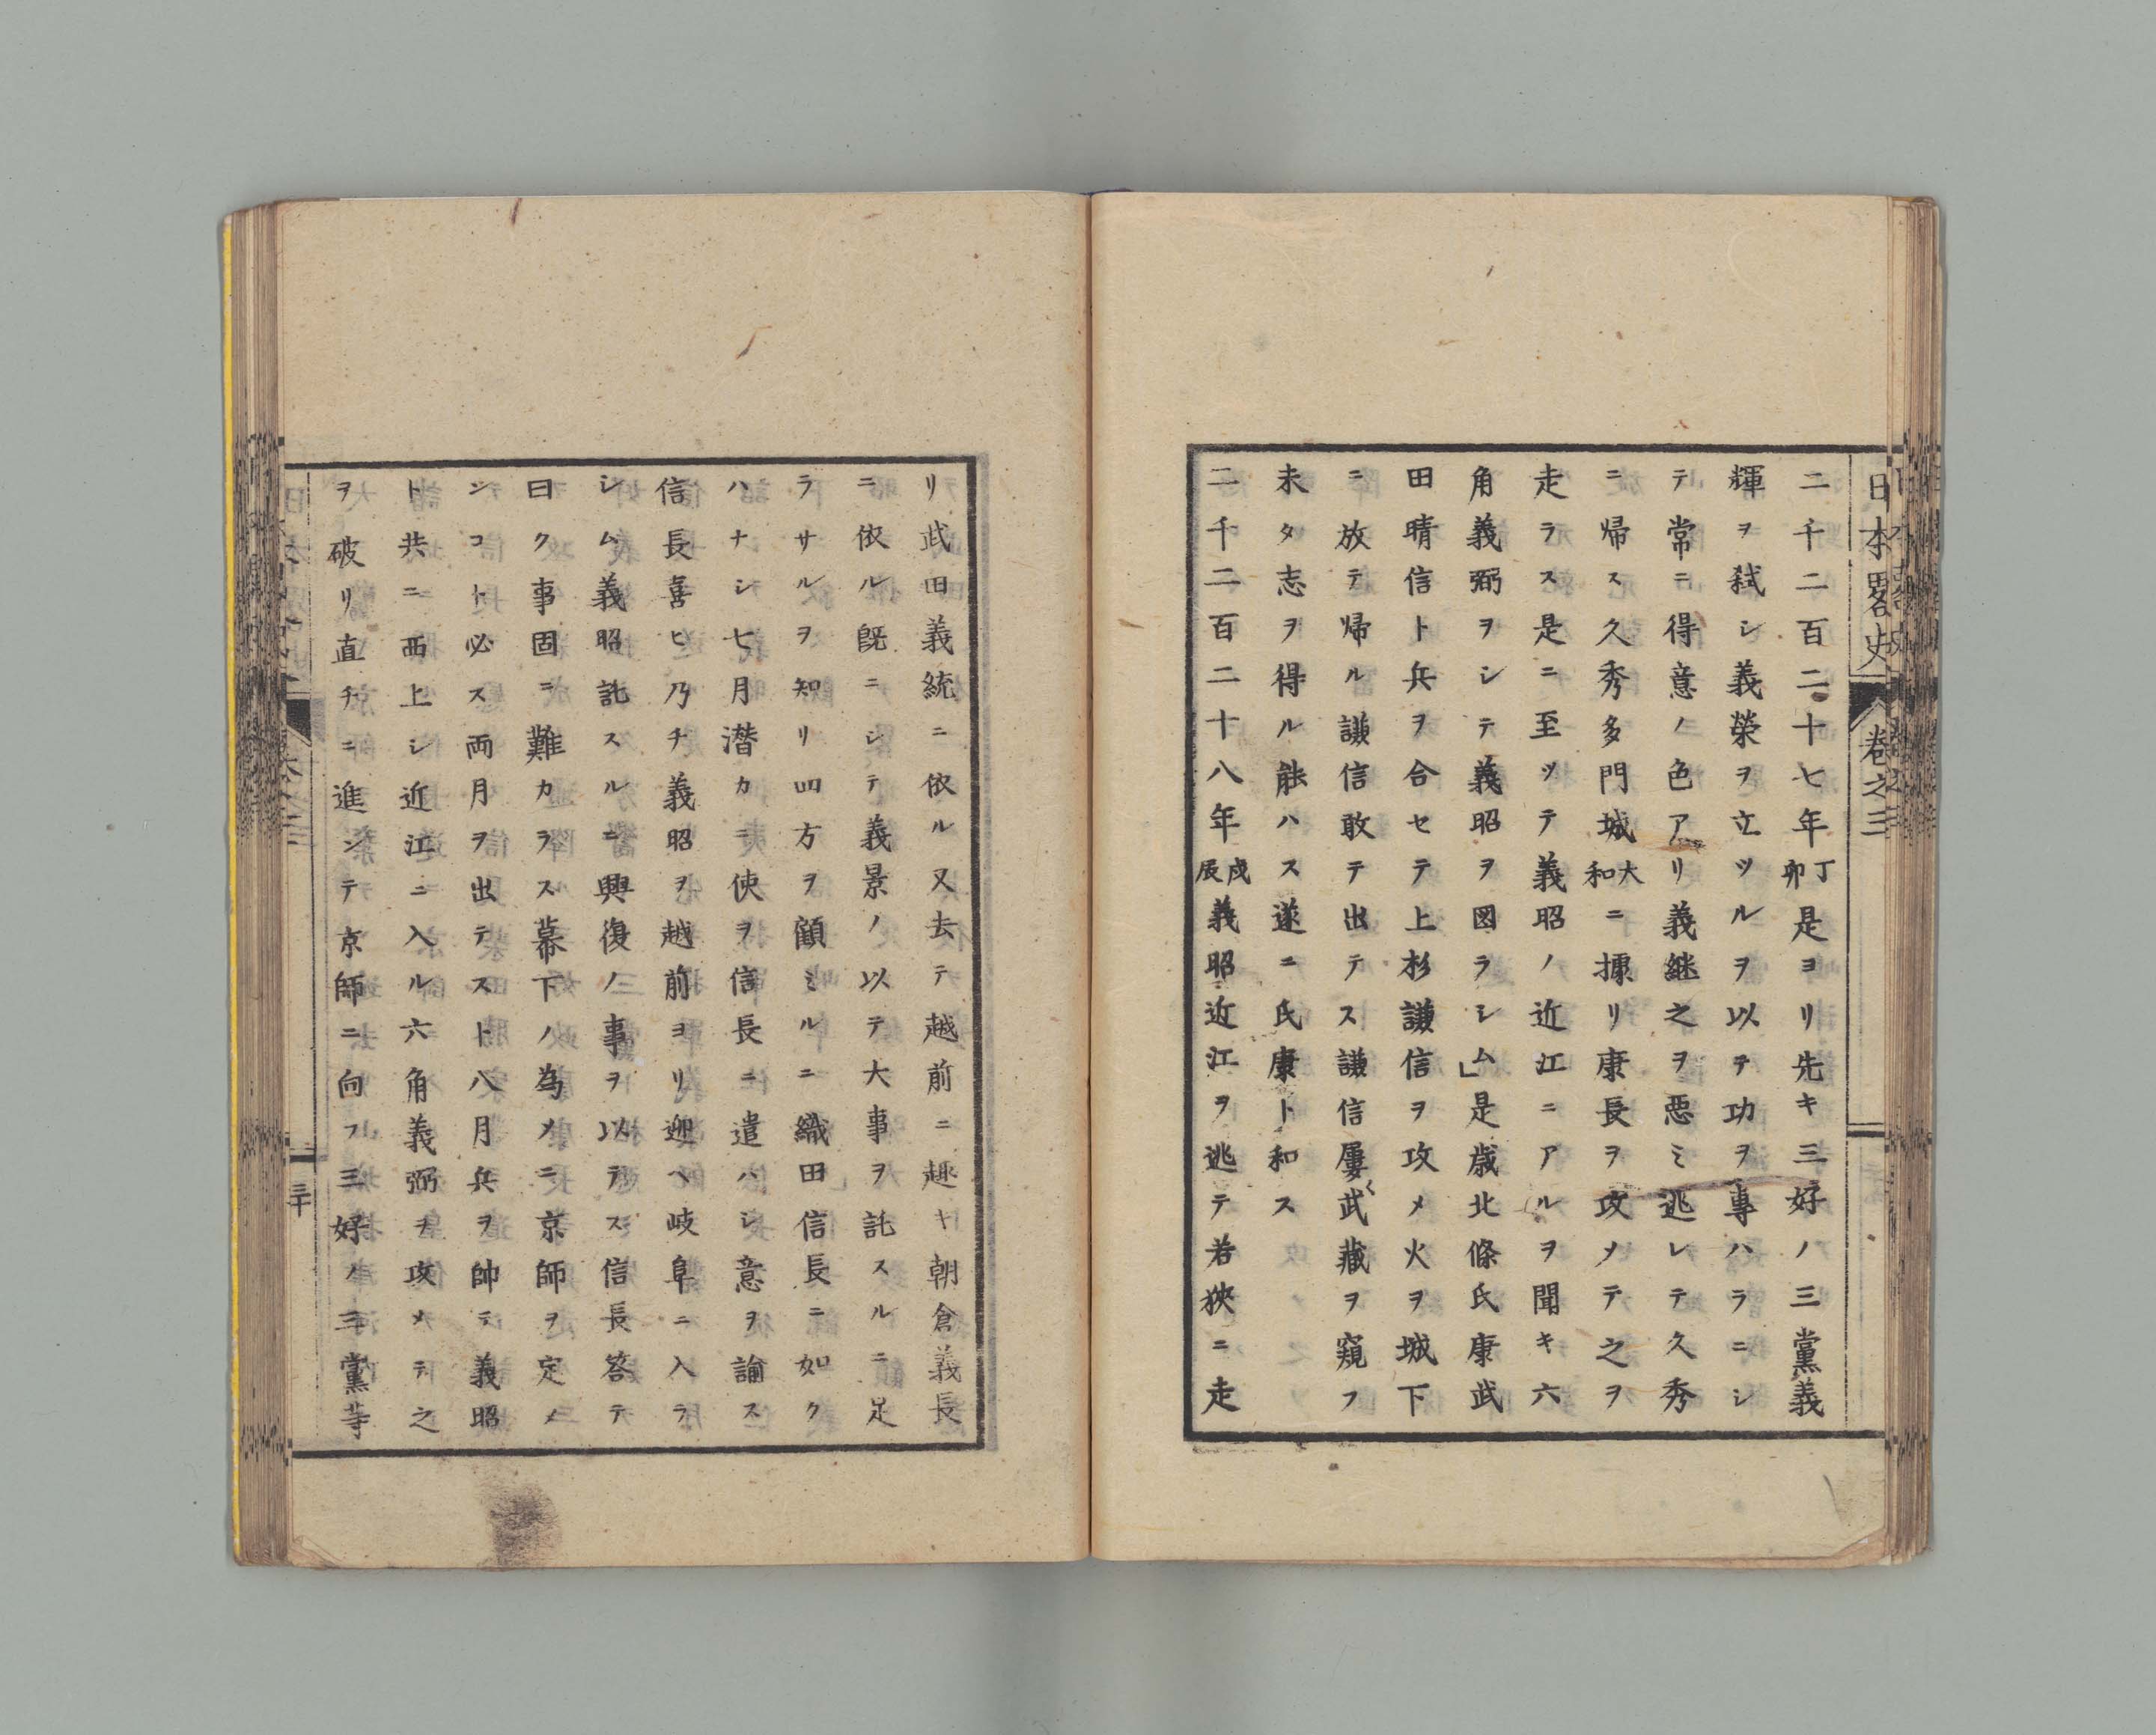 日本畧史 卷之三
二千二百二十七年丁卯是ヨリ先キ三好ノ三黨義
輝ヲ弑シ義榮ヲ立ツルヲ以テ功ヲ專ハラニシ
テ常ニ得意ノ色アリ義継之ヲ惡ミ逃レテ久秀
ニ帰ス久秀多門城大和ニ據リ康長ヲ攻メテ之ヲ
走ラス是ニ至ツテ義昭ノ近江ニアルヲ聞キ六
角義弼ヲシテ義昭ヲ図ラシム」是歳北條氏康武
田晴信ト兵ヲ合セテ上杉謙信ヲ攻メ火ヲ城下
ニ放テ帰ル謙信敢テ出テス謙信屢〻武藏ヲ窺フ
未タ志ヲ得ル能ハス遂ニ氏康ト和ス
二千二百二十八年戊辰義昭近江ヲ逃テ若狹ニ走
リ武田義統ニ依ル又去テ越前ニ趣キ朝倉義長
ニ依ル既ニシテ義景ノ以テ大事ヲ託スルニ足
ラサルヲ知リ四方ヲ顧ミルニ織田信長ニ如ク
ハナシ七月潛カニ使ヲ信長ニ遣ハシ意ヲ諭ス
信長喜ヒ乃チ義昭ヲ越前ヨリ迎ヘ岐阜ニ入ラ
シム義昭託スルニ興復ノ事ヲ以テス信長答テ
曰ク事固ヨリ難カラス幕下ノ為メニ京師ヲ定メ
ンコト必ス両月ヲ出テスト八月兵ヲ帥テ義昭
ト共ニ西上シ近江ニ入ル六角義弼ヲ攻メテ之
ヲ破リ直チニ進ンテ京師ニ向フ三好ノ三黨等
三十